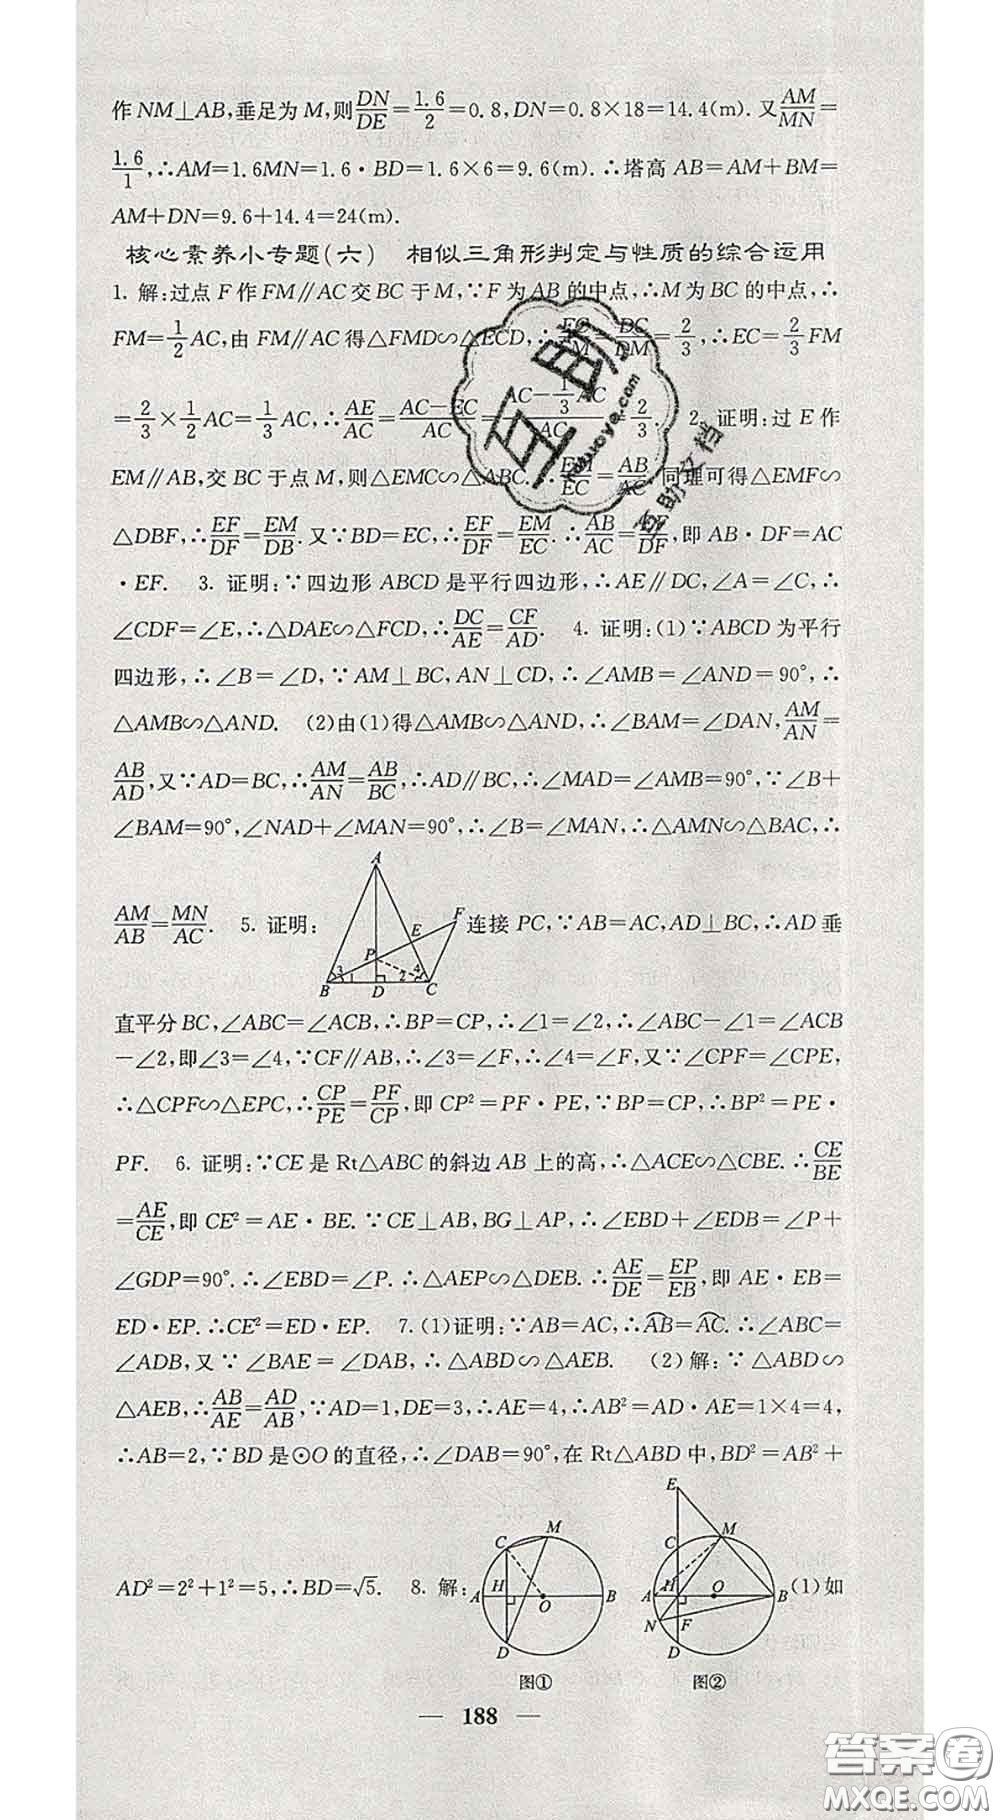 作NM⊥AB,垂足为M,则DN/DE=1.6/2=0.8,DN=0.8×18=14.4(m).又AM/MN=
1.6/1,∴AM=1.6MN=1.6·BD=1.6×6=9.6(m).∴塔高AB=AM+BM=
AM+DN=9.6+14.4=24(m).
核心素养小专题(六) 相似三角形判定与性质的综合运用
1. 解:过点F作FM∥AC交BC于M,∵F为AB的中点,∴M为BC的中点,∴
FM=1/2AC,由FM∥AC得△FMD∽△ECD,∴EC/FM=DC/DM=2/3,∴EC=2/3FM
=2/3×1/2AC=1/3AC,∴AE/AC=(AC-EC)/AC=(AC-1/3AC)/AC=2/3. 2. 证明:过E作
EM∥AB,交BC于点M,则△EMC∽△ABC.∴EM/EC=AB/AC,同理可得△EMF∽
△DBF,∴EF/DF=EM/DB.又∵BD=EC,∴EF/DF=EM/EC.∴AB/AC=EF/DF,即AB·DF=AC
·EF. 3. 证明:∵四边形ABCD是平行四边形,∴AE∥DC,∠A=∠C,∴
∠CDF=∠E,∴△DAE∽△FCD,∴DC/AE=CF/AD. 4. 证明:(1)∵ABCD为平行
四边形,∴∠B=∠D,∵AM⊥BC,AN⊥CD,∴∠AMB=∠AND=90°,∴
△AMB∽△AND. (2)由(1)得△AMB∽△AND,∴∠BAM=∠DAN,AM/AN=
AB/AD,又∵AD=BC,∴AM/AN=AB/BC,∴AD∥BC,∴∠MAD=∠AMB=90°,∵∠B+
∠BAM=90°,∠NAD+∠MAN=90°,∴∠B=∠MAN,∴△AMN∽△BAC,∴
AM/AB=MN/AC. 5. 证明: A F E P 3 1 2 4 B D C 连接PC,∵AB=AC,AD⊥BC,∴AD垂
直平分BC,∠ABC=∠ACB,∴BP=CP,∴∠1=∠2,∴∠ABC-∠1=∠ACB
-∠2,即∠3=∠4,∵CF∥AB,∴∠3=∠F,∴∠4=∠F,又∵∠CPF=∠CPE,
∴△CPF∽△EPC,∴CP/PE=PF/CP,即CP²=PF·PE,∵BP=CP,∴BP²=PE·
PF. 6. 证明:∵CE是Rt△ABC的斜边AB上的高,∴△ACE∽△CBE.∴CE/BE
=AE/CE,即CE²=AE·BE.∵CE⊥AB,BG⊥AP,∴∠EBD+∠EDB=∠P+
∠GDP=90°.∴∠EBD=∠P.∴△AEP∽△DEB.∴AE/DE=EP/EB,即AE·EB=
ED·EP.∴CE²=ED·EP. 7. (1)证明:∵AB=AC,∴AB⌒=AC⌒.∴∠ABC=
∠ADB,又∵∠BAE=∠DAB,∴△ABD∽△AEB. (2)解:∵△ABD∽
△AEB,∴AB/AE=AD/AB,∵AD=1,DE=3,∴AE=4,∴AB²=AD·AE=1×4=4,
∴AB=2,∵BD是⊙O的直径,∴∠DAB=90°,在Rt△ABD中,BD²=AB²+
AD²=2²+1²=5,∴BD=√5. 8. 解: C M A H O B D E C M A H O B N F D (1)如
图① 图②
— 188 —
互助
huzuoye.com
互助文档
答案圈
MXQE.COM